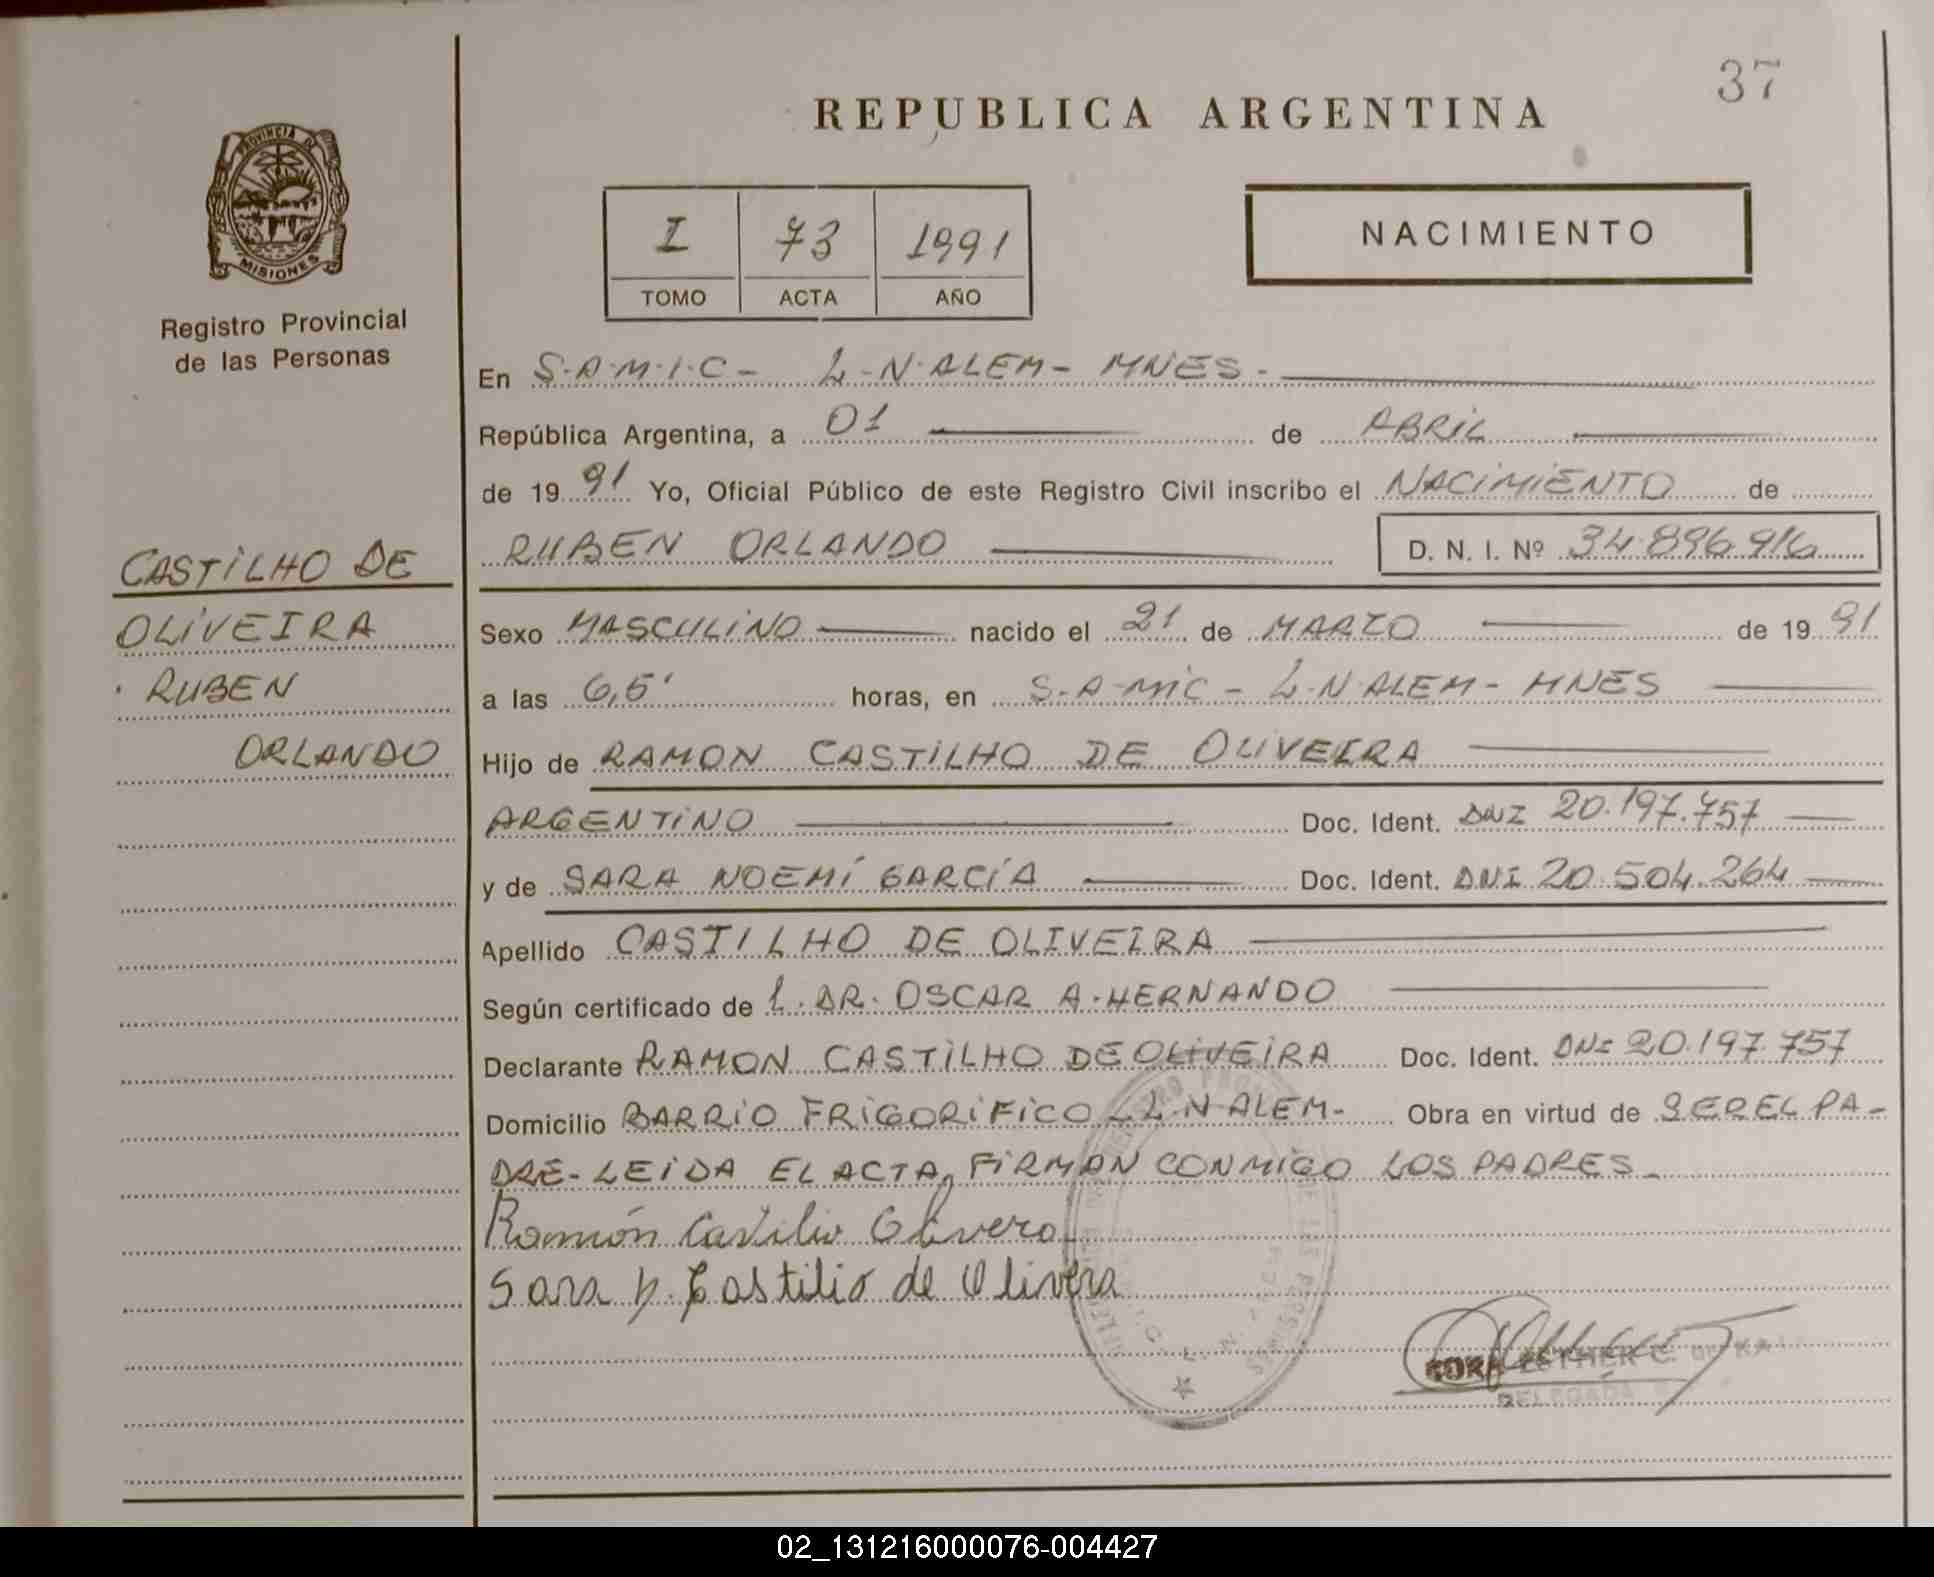 37
REPUBLICA ARGENTINA
PROVINCIA DE
MISIONES
Registro Provincial
de las Personas
I 73 1991
TOMO ACTA AÑO
NACIMIENTO
En S.A.M.I.C - L.N.ALEM - MNES.
República Argentina, a 01 de ABRIL
de 1991 Yo, Oficial Público de este Registro Civil inscribo el NACIMIENTO de
RUBEN ORLANDO D. N. I. Nº 34.896.916
CASTILHO DE
OLIVEIRA
RUBEN
ORLANDO
Sexo MASCULINO nacido el 21 de MARZO de 1991
a las 6,5' horas, en S.A.MIC - L.N.ALEM - MNES
Hijo de RAMON CASTILHO DE OLIVEIRA
ARGENTINO Doc. Ident. DNI 20.197.757
y de SARA NOEMÍ GARCÍA Doc. Ident. DNI 20.504.264
Apellido CASTILHO DE OLIVEIRA
Según certificado de L. DR. OSCAR A. HERNANDO
Declarante RAMON CASTILHO DE OLIVEIRA Doc. Ident. DNI 20.197.757
Domicilio BARRIO FRIGORIFICO - L.N ALEM - Obra en virtud de SER EL PA-
DRE - LEIDA EL ACTA, FIRMAN CONMIGO LOS PADRES -
Ramón Castilio Olivera
Sara N. Castilio de Olivera
ESTHER C.
DELEGADA
02_131216000076-004427